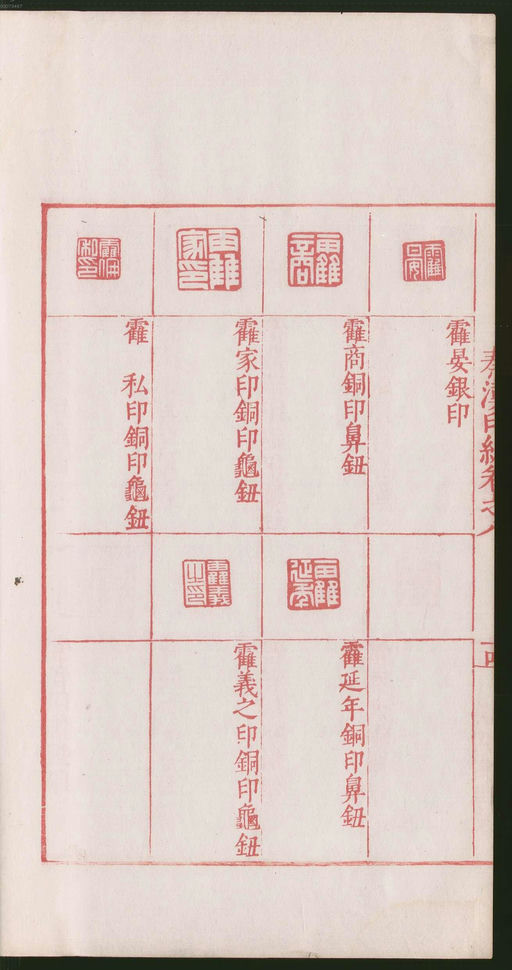 秦漢印統卷之八
霍晏銀印
霍商銅印鼻鈕
霍家印銅印龜鈕
霍 私印銅印龜鈕
霍延年銅印鼻鈕
霍義之印銅印龜鈕